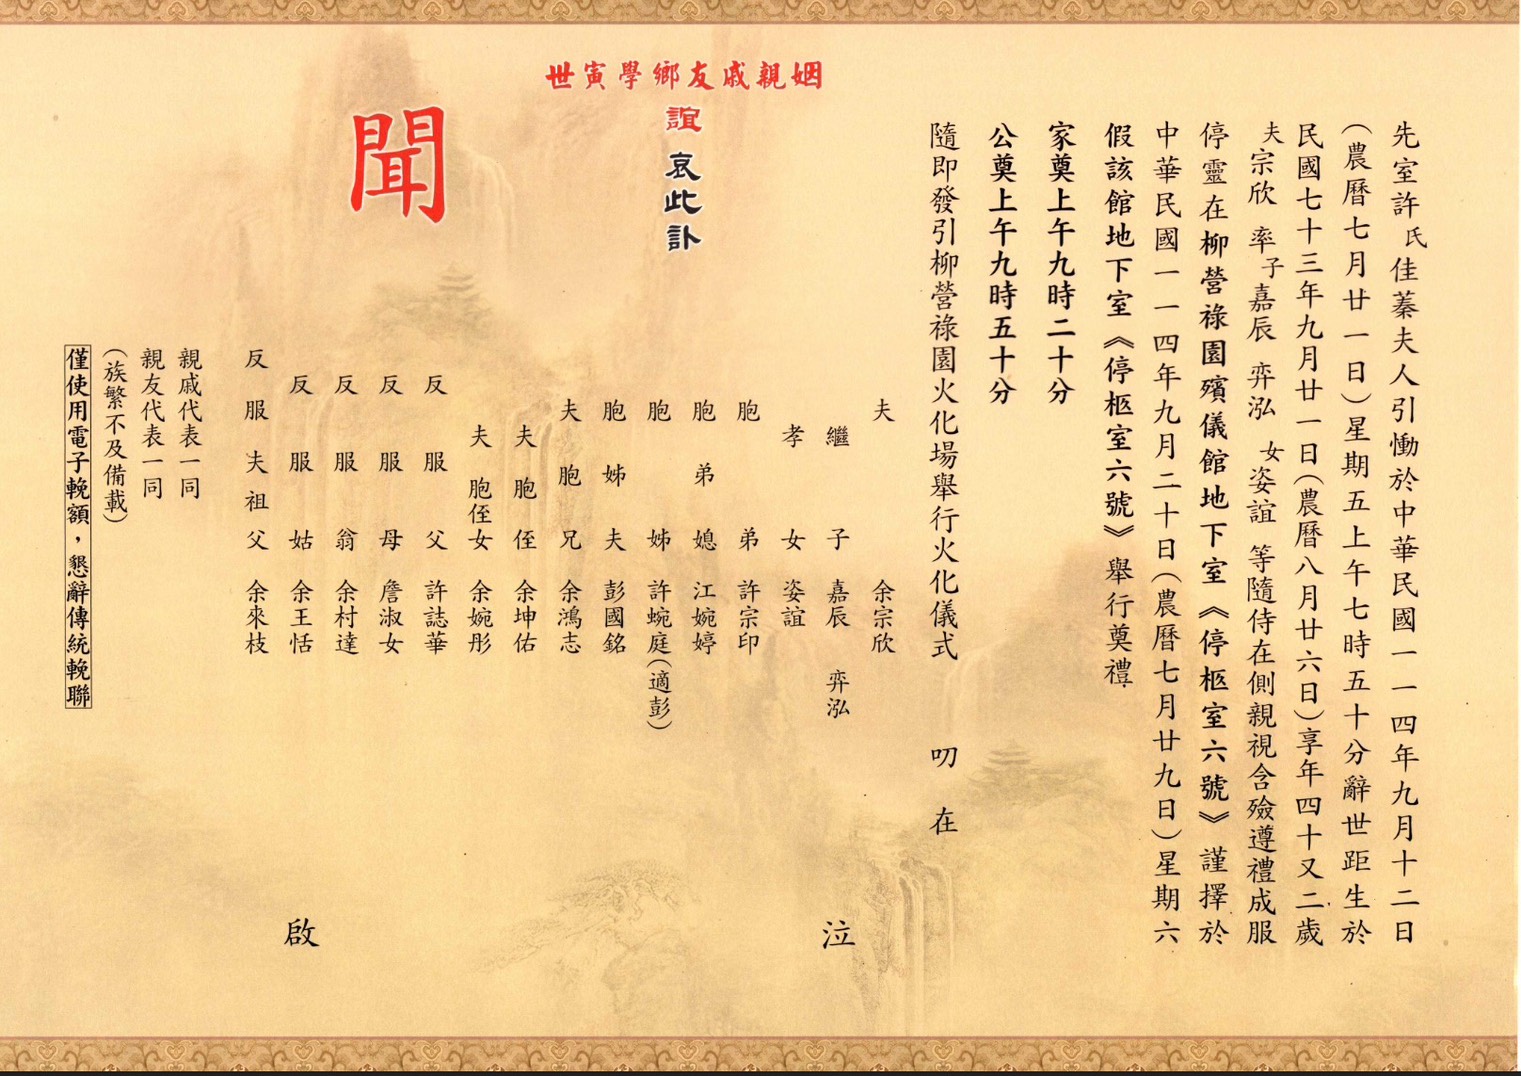 先室許氏佳蓁夫人引慟於中華民國一一四年九月十二日
(農曆七月廿一日)星期五上午七時五十分辭世距生於
民國七十三年九月廿一日(農曆八月廿六日)享年四十又二歲
夫宗欣 率子嘉辰 弈泓 女姿誼 等隨侍在側親視含殮遵禮成服
停靈在柳營祿園殯儀館地下室《停柩室六號》謹擇於
中華民國一一四年九月二十日(農曆七月廿九日)星期六
假該館地下室《停柩室六號》舉行奠禮
家奠上午九時二十分
公奠上午九時五十分
隨即發引柳營祿園火化場舉行火化儀式 叨在
姻親戚友鄉學寅世
誼 哀此訃
聞
夫 余宗欣
繼子 嘉辰 弈泓
孝女 姿誼
胞弟 許宗印
胞弟媳 江婉婷
胞姊 許蜿庭(適彭)
胞姊夫 彭國銘
夫胞兄 余鴻志
夫胞侄 余坤佑
夫胞侄女 余婉彤
反服父 許誌華
反服母 詹淑女
反服翁 余村達
反服姑 余王恬
反服夫祖父 余來枝
泣
啟
親戚代表一同
親友代表一同
(族繁不及備載)
僅使用電子輓額，懇辭傳統輓聯